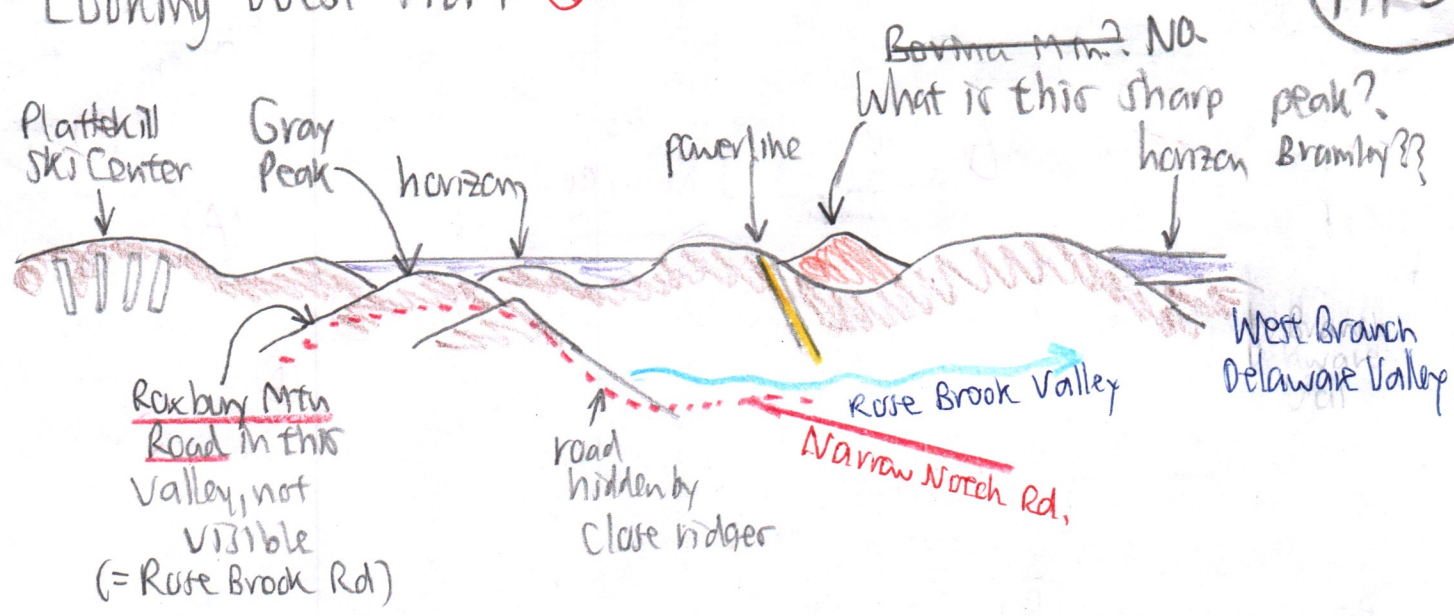 Looking West from
Bovina Mtn? No.
What is this sharp peak?
Bramley??
Plattekill
Ski Center
Gray
Peak
horizon
powerline
horizon
West Branch
Delaware Valley
Rose Brook Valley
Roxbury Mtn
Road in this
valley, not
visible
(= Rose Brook Rd)
road
hidden by
close ridges
Narrow Notch Rd.